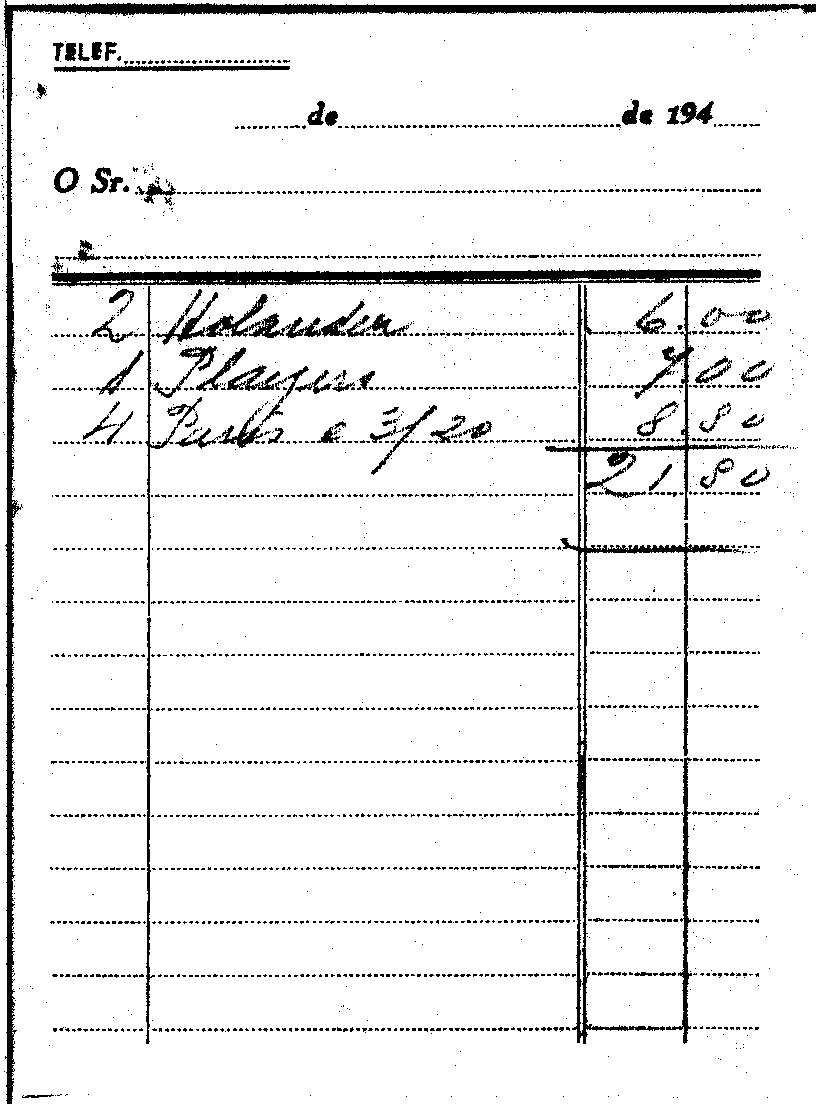 TELEF.
de de 194
O Sr.
2 Holandesa 6.00
1 Players 7.00
4 e 3/20 8.80
21 80